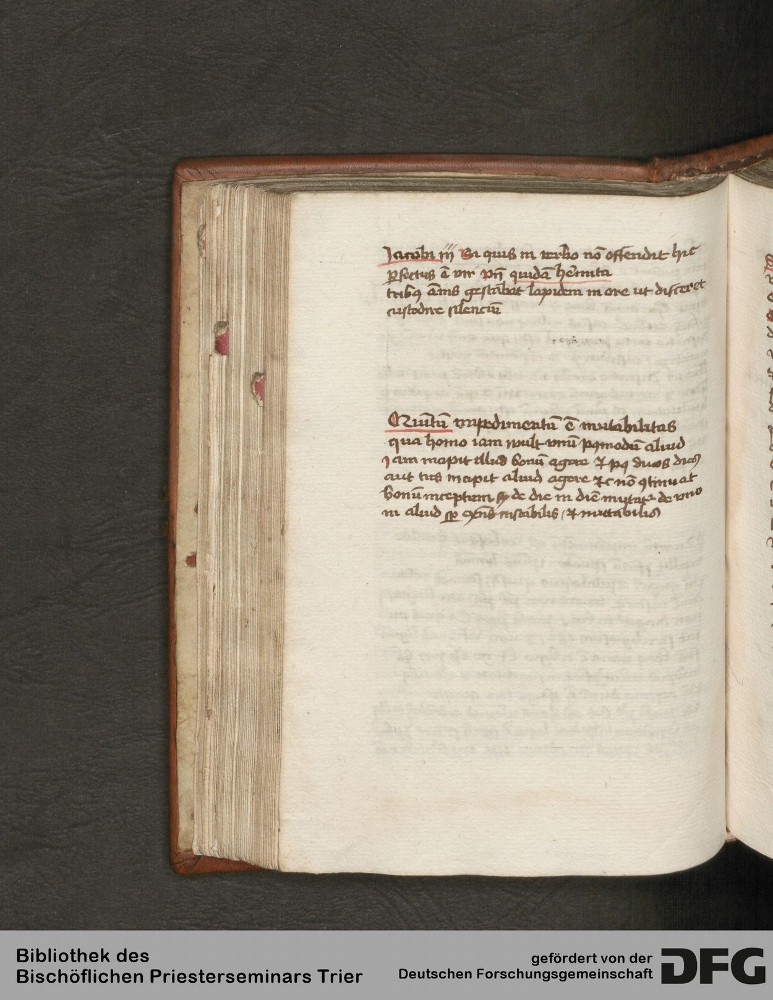 Jacobi iij Si quis in verbo nō offendit hic
ꝑfectus ē vir vn̄ quidā hēmita
tribꝫ ānis gestabat lapidem in ore ut disceret
custodire silenciū
Quītū impedimentū ē mutabilitas
qua homo iam vult vnū aliud
iam incipit illud bonū agere ⁊ duos dies
aut tres incipit aliud agere ⁊c nō ꝯtinuat
bonū inceptum de die in diē mutat᷑ de vno
in aliud instabilis ⁊ mutabilis
Bibliothek des
Bischöflichen Priesterseminars Trier
gefördert von der
Deutschen Forschungsgemeinschaft
DFG